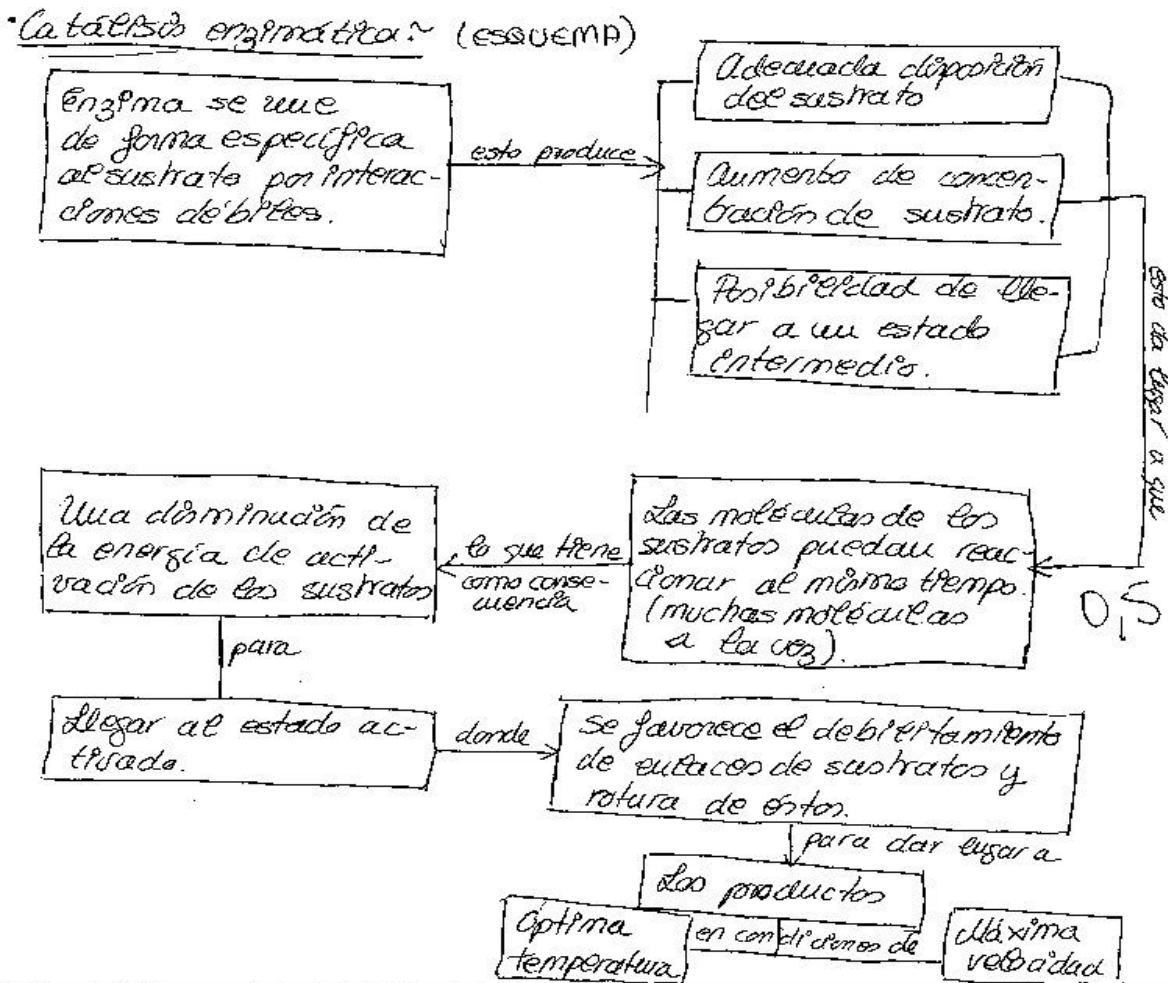 ·Catálisis enzimática:~ (ESQUEMA)
Enzima se une
de forma específica
al sustrato por interac-
ciones débiles.
esto produce
Adecuada disposición
del sustrato
Aumento de concen-
tración de sustrato.
Posibilidad de lle-
gar a un estado
intermedio.
esto da lugar a que
Las moléculas de los
sustratos puedan reac-
cionar al mismo tiempo.
(muchas moléculas
a la vez).
0,5
lo que tiene
como conse-
cuencia
Una disminución de
la energía de acti-
vación de los sustratos
para
Llegar al estado ac-
tivado.
donde
Se favorece el debilitamiento
de enlaces de sustratos y
rotura de éstos.
para dar lugar a
Los productos
en condiciones de
Óptima
temperatura
Máxima
velocidad